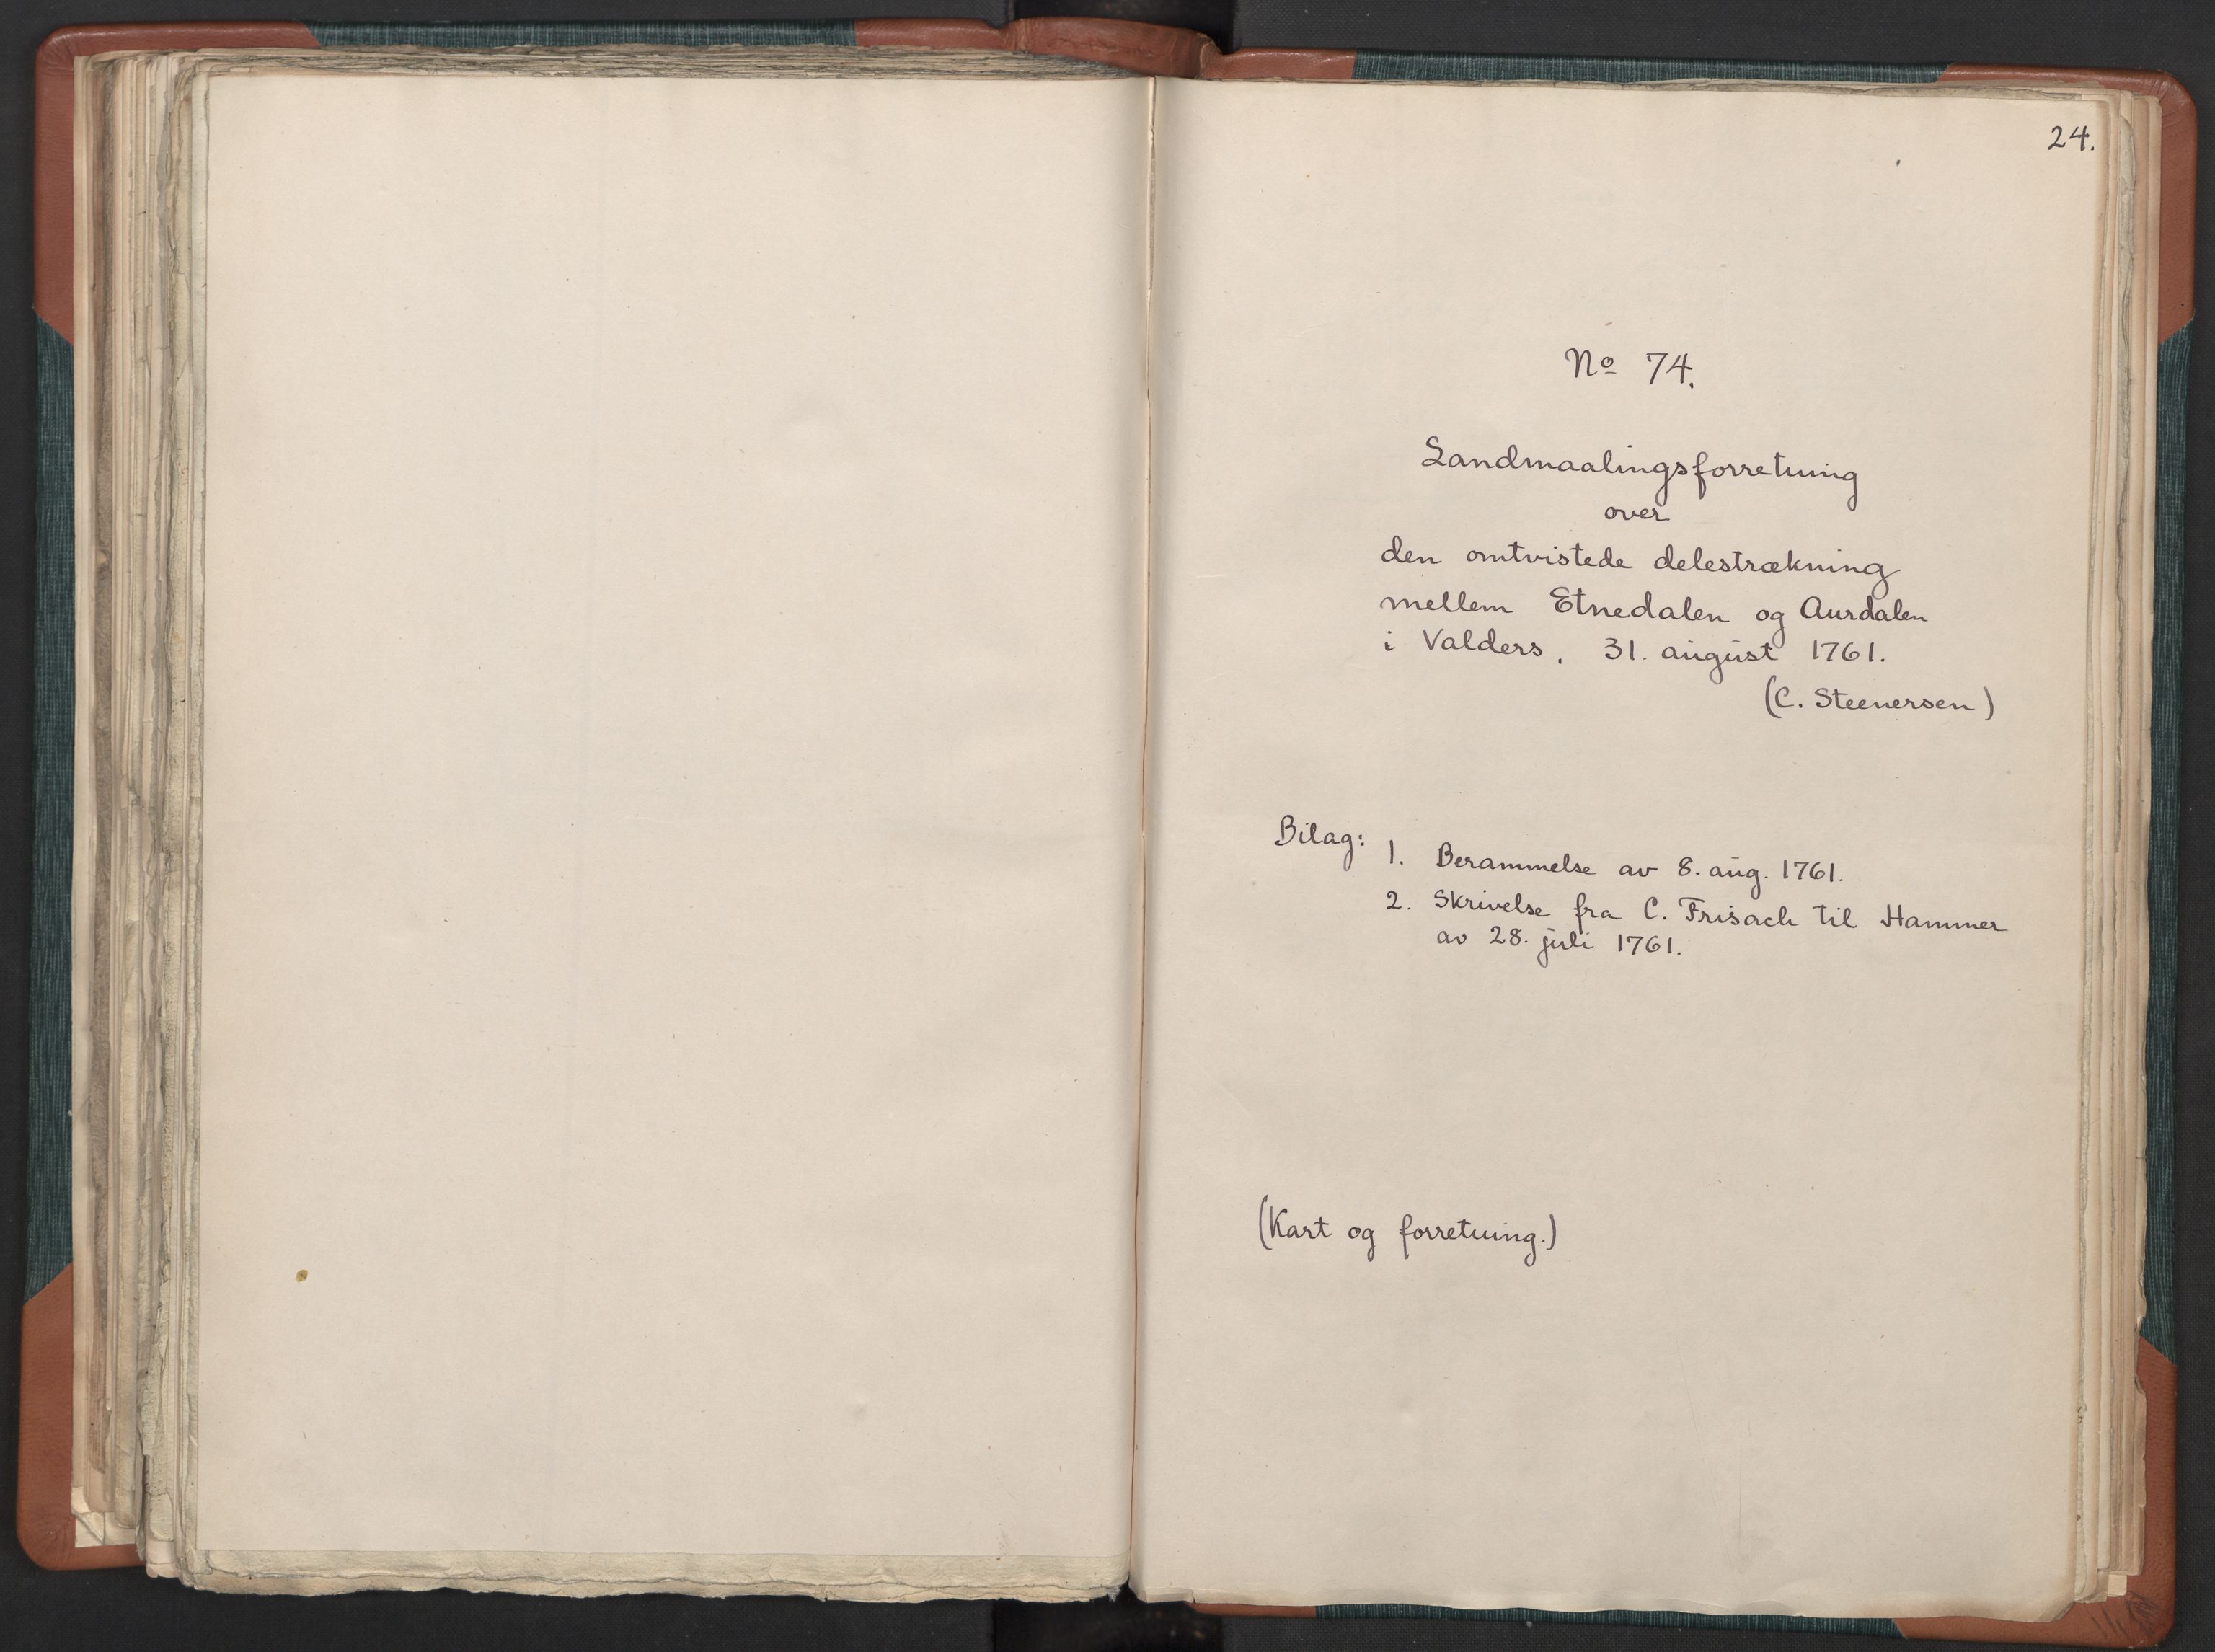 24.
Nº 74.
Landmaalingsforretning
over
den omtvistede delestrækning
mellem Etnedalen og Aurdalen
i Valders, 31. august 1761.
(C. Steenersen)
Bilag: 1. Berammelse av 8. aug. 1761.
2. Skrivelse fra C. Frisach til Hammer
av 28. juli 1761.
(Kart og forretning.)